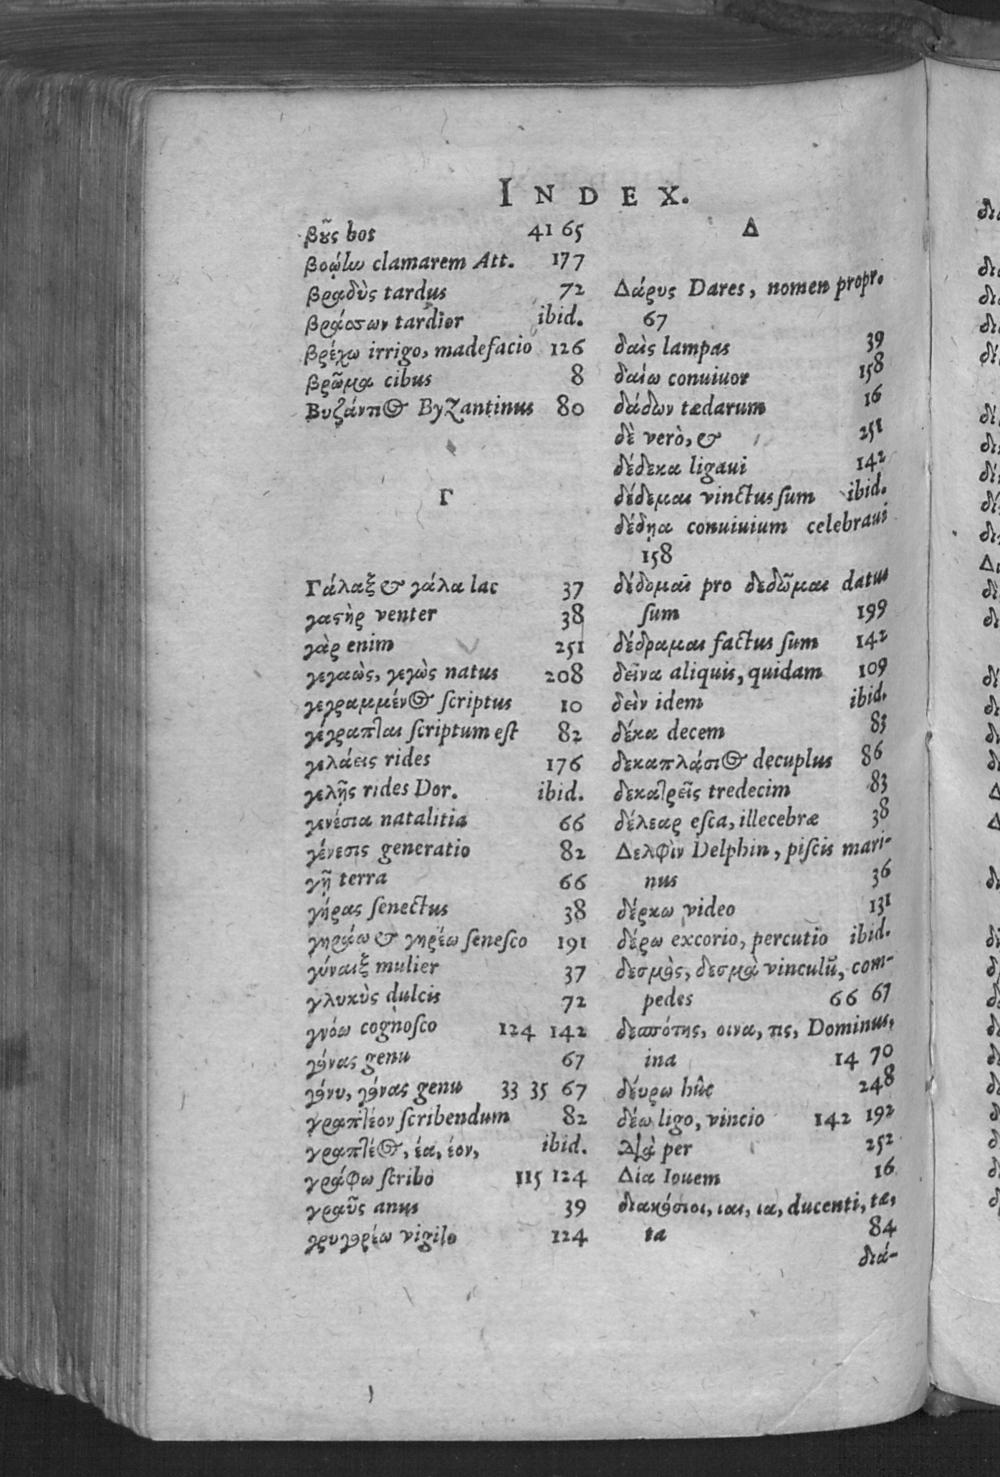 INDEX.
βοῦς bos 41 65
βοῴην clamarem Att. 177
βραδὺς tardus 72
βράσσων tardior ibid.
βρέχω irrigo, madefacio 126
βρῶμα cibus 8
Βυζάντιος Byzantinus 80
Γ
Γάλαξ & γάλα lac 37
γαστὴρ venter 38
γὰρ enim 251
γεγαὼς, γεγὼς natus 208
γεγραμμένος scriptus 10
γέγραπται scriptum est 82
γελάεις rides 176
γελῇς rides Dor. ibid.
γενέσια natalitia 66
γένεσις generatio 82
γῆ terra 66
γήρας senectus 38
γηράω & γηρέω senesco 191
γύναιξ mulier 37
γλυκὺς dulcis 72
γνόω cognosco 124 142
γόνας genu 67
γόνυ, γόνας genu 33 35 67
γραπτέον scribendum 82
γραπτέος, έα, έον, ibid.
γράφω scribo 115 124
γραῦς anus 39
γρυγορέω vigilo 124
Δ
Δάρυς Dares, nomen propr.
67
δαὶς lampas 39
δαίω conuiuor 158
δάδων tædarum 16
δὲ verò, & 251
δέδεκα ligaui 142
δέδεμαι vinctus sum ibid.
δέδῃα conuiuium celebraui
158
δέδομαι pro δεδῶμαι datus
sum 199
δέδραμαι factus sum 142
δεῖνα aliquis, quidam 109
δεὶν idem ibid.
δέκα decem 83
δεκαπλάσιος decuplus 86
δεκατρεῖς tredecim 83
δέλεαρ esca, illecebræ 38
Δελφὶν Delphin, piscis mari-
nus 36
δέρκω video 131
δέρω excorio, percutio ibid.
δεσμὸς, δεσμὰ vinculū, com-
pedes 66 67
δεσπότης, οινα, τις, Dominus,
ina 14 70
δέυρω hûc 248
δέω ligo, vincio 142 192
Διὰ per 252
Δία Iouem 16
διακόσιοι, ιαι, ια, ducenti, tæ,
ta 84
διά-